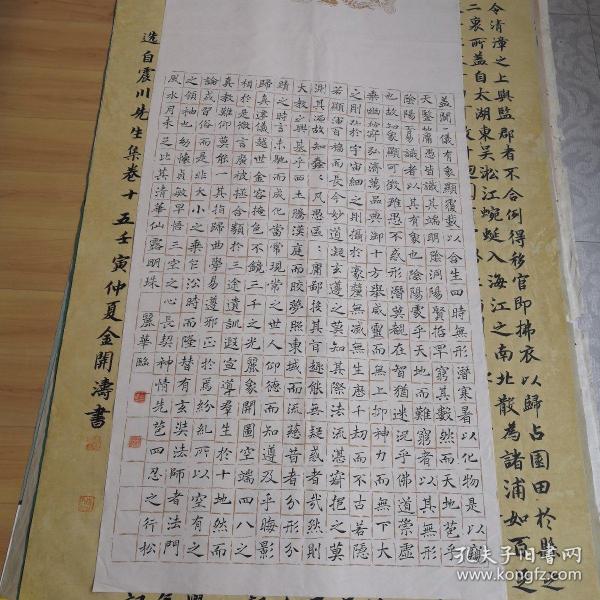 令清漳之上與監郡者不合例得移官即拂衣以歸占園田於
二裏所蓋自太湖東吳淞江蜿蜒入海江之南北散為諸浦如
蓋聞二儀有象顯覆載以含生四時無形潛寒暑以化物是以窺
天鑒地庸愚皆識其端明陰洞陽賢哲罕窮其數然而天地苞乎
陰陽而易識者以其有象也陰陽處乎天地而難窮者以其無形
也故知象顯可徵雖愚不惑形潛莫覩在智猶迷況乎佛道崇虛
乘幽控寂弘濟萬品典御十方舉威靈而無上抑神力而無下大
之則彌於宇宙細之則攝於豪釐無滅無生歷千劫而不古若隱
若顯運百福而長今妙道凝玄遵之莫知其際法流湛寂挹之莫
測其源故知蠢蠢凡愚區區庸鄙投其旨趣能無疑惑者哉然則
大教之興基乎西土騰漢庭而皎夢照東域而流慈昔者分形分
蹟之時言未馳而成化當常現常之世人仰德而知遵及乎晦影
歸真遷儀越世金容掩色不鏡三千之光麗象開圖空端四八之
相於是微言廣被拯含類於三途遺訓遐宣導羣生於十地然而
真教難仰莫能一其指歸曲學易遵邪正於焉紛糺所以空有之
論或習俗而是非大小之乘乍沿時而隆替有玄奘法師者法門
之領袖也幼懷貞敏早悟三空之心長契神情先苞四忍之行松
風水月未足比其清華仙露明珠 麗華臨
選自震川先生集卷十五壬寅仲夏金開濤書
孔夫子旧书网
www.kongfz.com